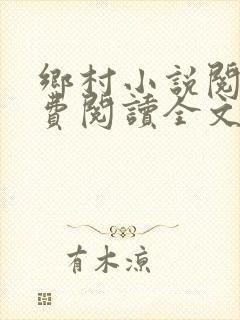 鄉村小說閱
費閱讀全文
有木涼